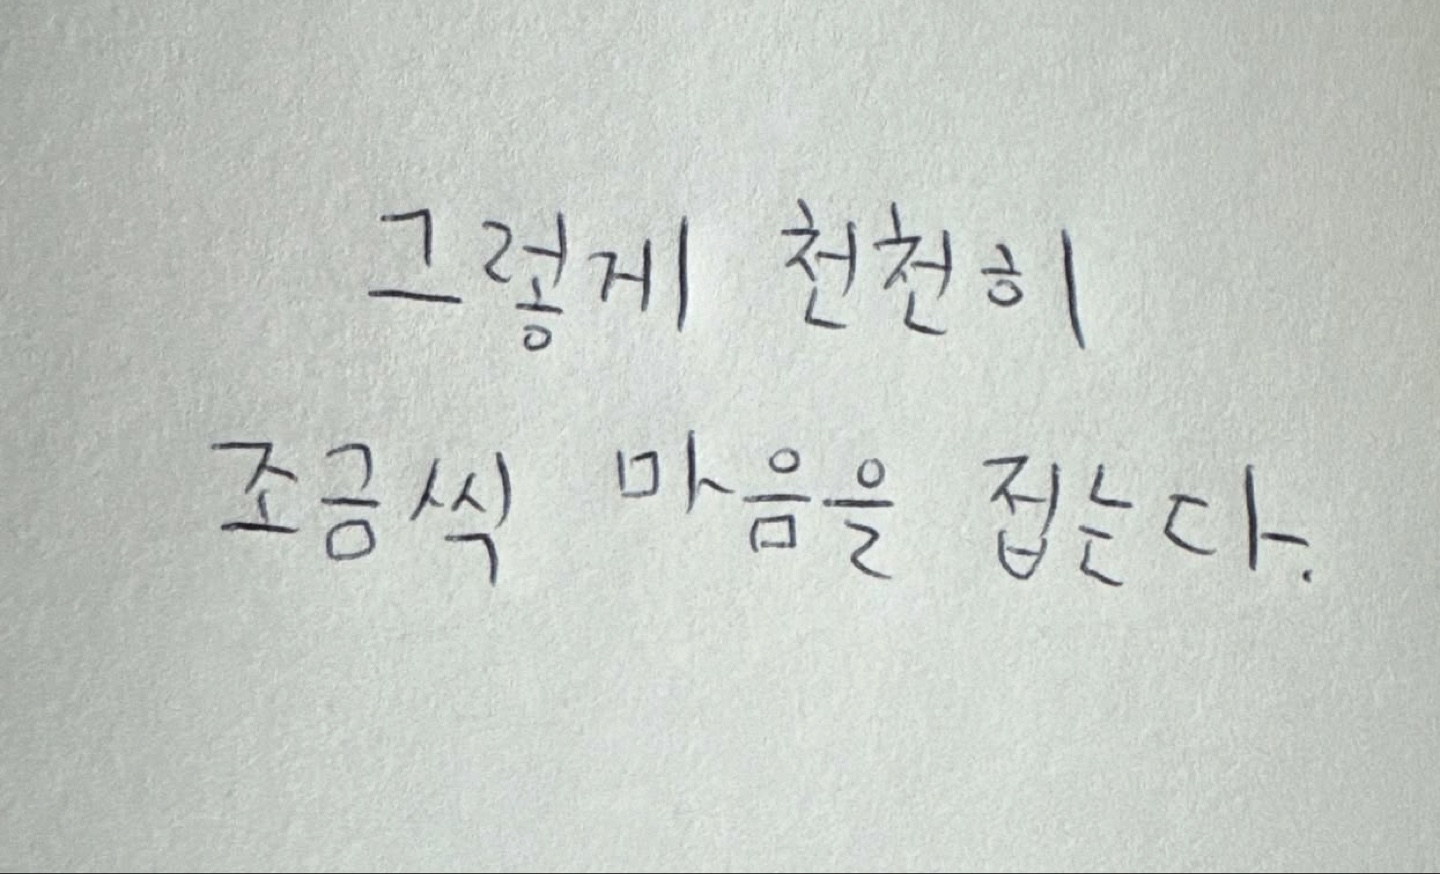 그렇게 천천히
조금씩 마음을 접는다.